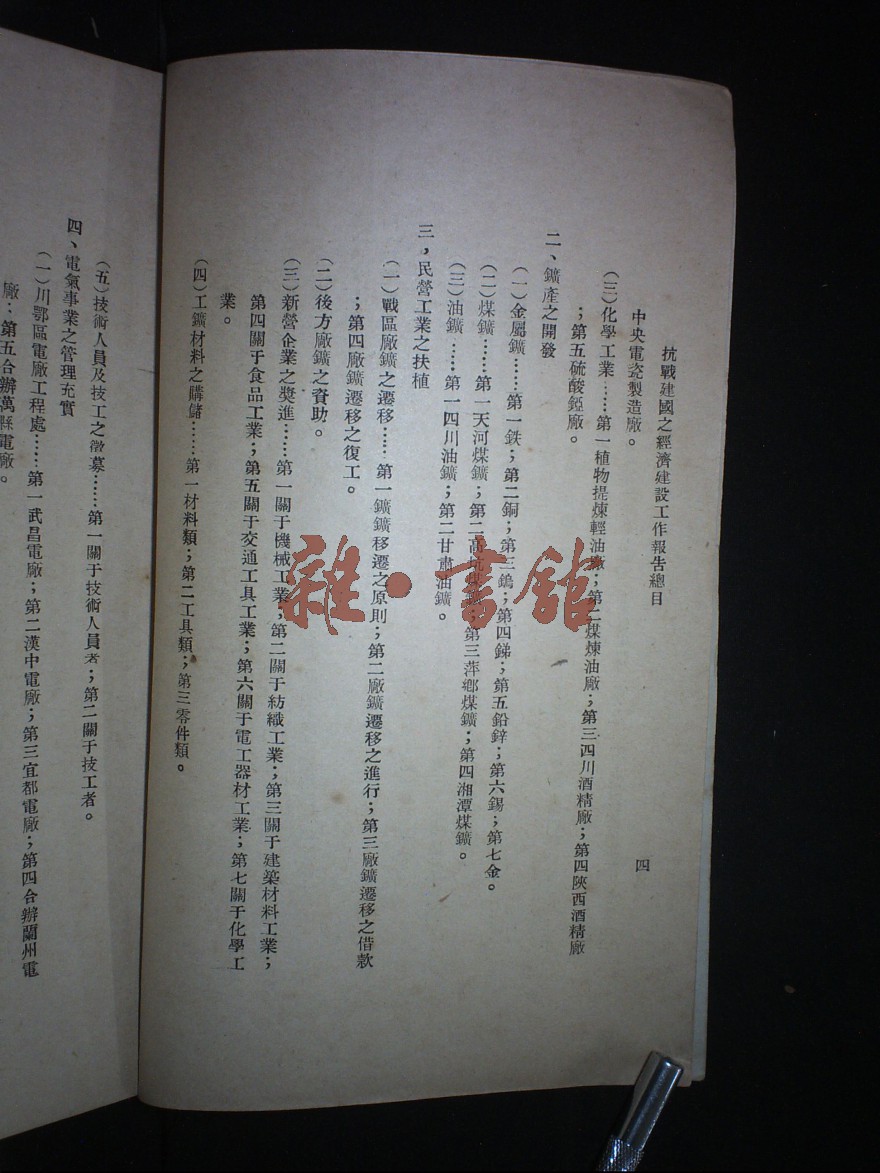 抗戰建國之經濟建設工作報告總目
四
中央電瓷製造廠。
(三)化學工業……第一植物提煉輕油廠；第二煤煉油廠；第三四川酒精廠；第四陝西酒精廠
；第五硫酸錏廠。
二、鑛產之開發
(一)金屬鑛……第一鉄；第二銅；第三鎢；第四銻；第五鉛鋅；第六錫；第七金。
(二)煤鑛……第一天河煤鑛；第二高坑煤鑛；第三萍鄉煤鑛；第四湘潭煤鑛。
(三)油鑛……第一四川油鑛；第二甘肅油鑛。
三，民營工業之扶植
(一)戰區廠鑛之遷移……第一鑛鑛移遷之原則；第二厰鑛遷移之進行；第三厰鑛遷移之借款
；第四厰鑛遷移之復工。
(二)後方廠鑛之資助。
(三)新營企業之獎進……第一關于機械工業；第二關于紡織工業；第三關于建築材料工業；
第四關于食品工業；第五關于交通工具工業；第六關于電工器材工業；第七關于化學工
業。
(四)工鑛材料之購儲……第一材料類；第二工具類；第三零件類。
(五)技術人員及技工之徵募……第一關于技術人員者；第二關于技工者。
四、電氣事業之管理充實
(一)川鄂區電廠工程處……第一武昌電廠；第二漢中電廠；第三宜都電廠；第四合辦蘭州電
廠；第五合辦萬縣電廠。
雜·書館